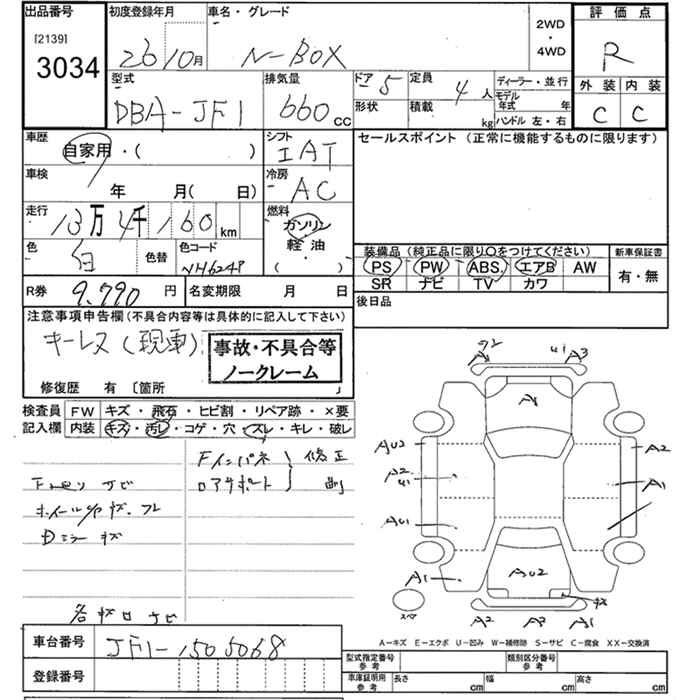 出品番号 初度登録年月 車名・グレード 2WD・4WD 評価点
[2139]
3034 26 10月 N-BOX R
型式 排気量 ドア 5 定員 4人 ディーラー・並行 外装 内装
DBA-JF1 660cc 形状 積載 kg モデル年式 年 C C
ハンドル 左・右
車歴 シフト セールスポイント (正常に機能するものに限ります)
自家用・( ) IAT
車検 冷房
年 月( 日) AC
走行 燃料
13万4千160km ガソリン
色 白 色替 色コード NH624P 軽油
( )
装備品(純正品に限り○をつけてください) 新車保証書
PS PW ABS. エアB AW 有・無
SR ナビ TV カワ
R券 9,790円 名変期限 月 日 後日品
注意事項申告欄(不具合内容等は具体的に記入して下さい)
キーレス(現車) 事故・不具合等
ノークレーム
修復歴 有 〔箇所 〕
検査員 FW キズ・飛石・ヒビ割・リペア跡・×要
記入欄 内装 キズ・汚レ・コゲ・穴・スレ・キレ・破レ
Fインパネ 修正
ロアサポート
サビ
ホイール キズ.
Dミラー キズ
サビ
A2 U1 A3
A1
AU2 A2
A2
U1 A1
AU1
A1 AU2 キズ
スペア
A2 A3 A1
A-キズ E-エクボ U-凹み W-補修跡 S-サビ C-腐食 XX-交換済
車台番号 JF1-1505068
登録番号
型式指定番号 参考 類別区分番号 参考
車庫証明用 参考 長さ cm 幅 cm 高さ cm